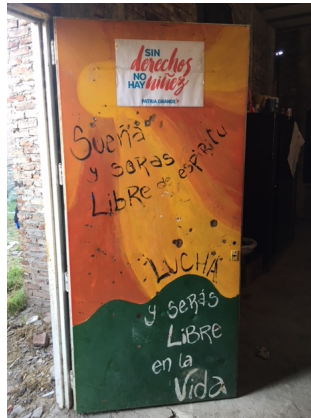 SIN
derechos
NO
HAY niñez
PATRIA GRANDE
Sueña
y serás
Libre de espíritu
LUCHA
y serás
LiBRE
en la
Vida